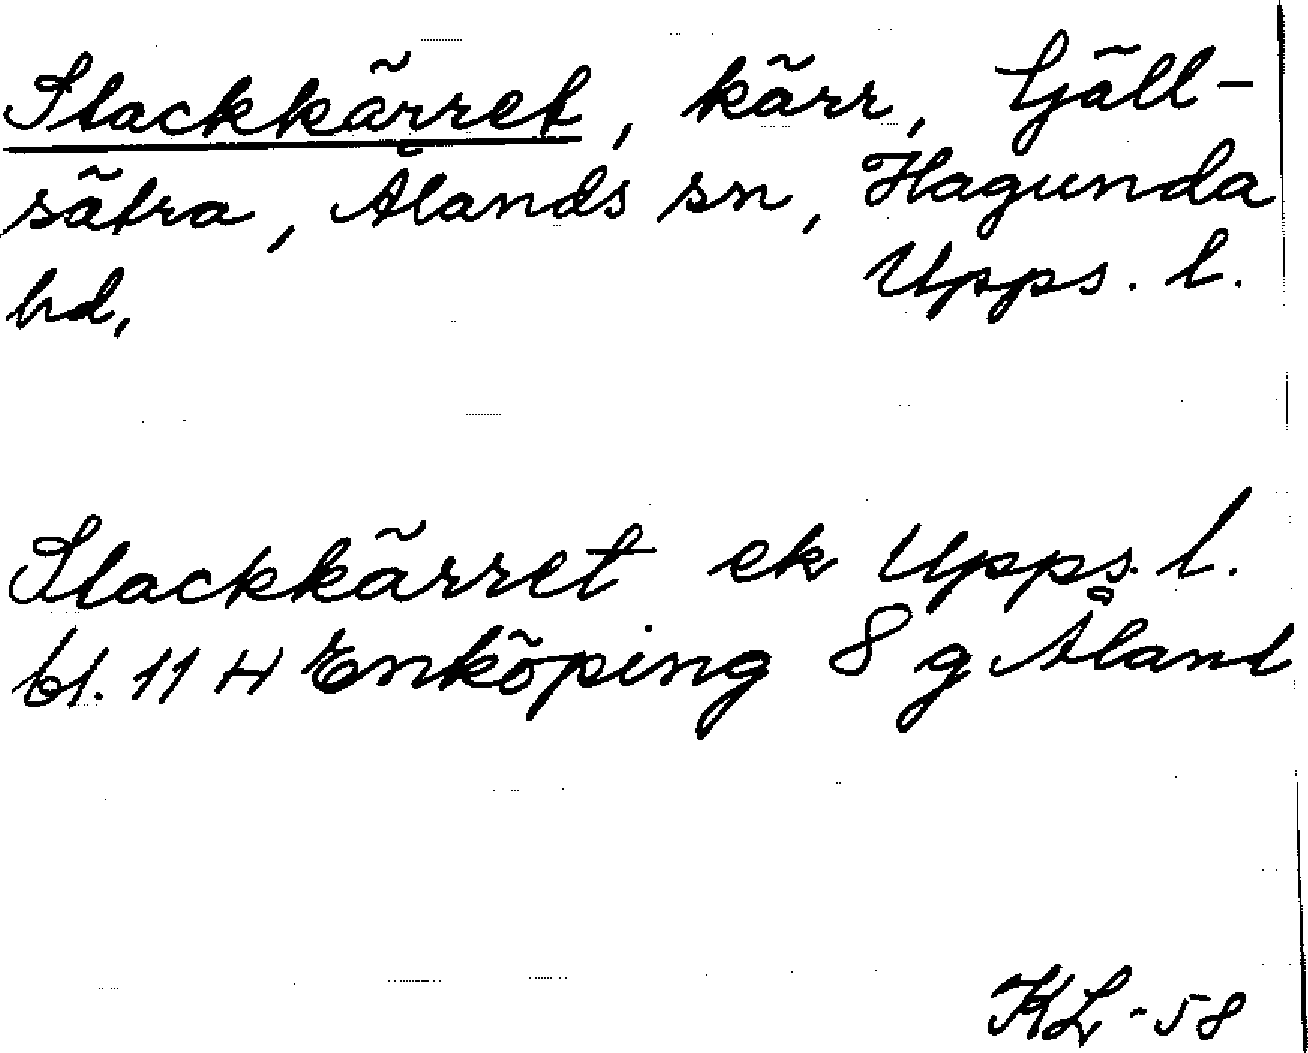 Stackkärret, kärr, Gjäll-
sätra, Ålands sn, Hagunda
hd, Upps. l.
Stackkärret ek Upps. l.
bl. 11 H Enköping 8 g Åland
KL-58